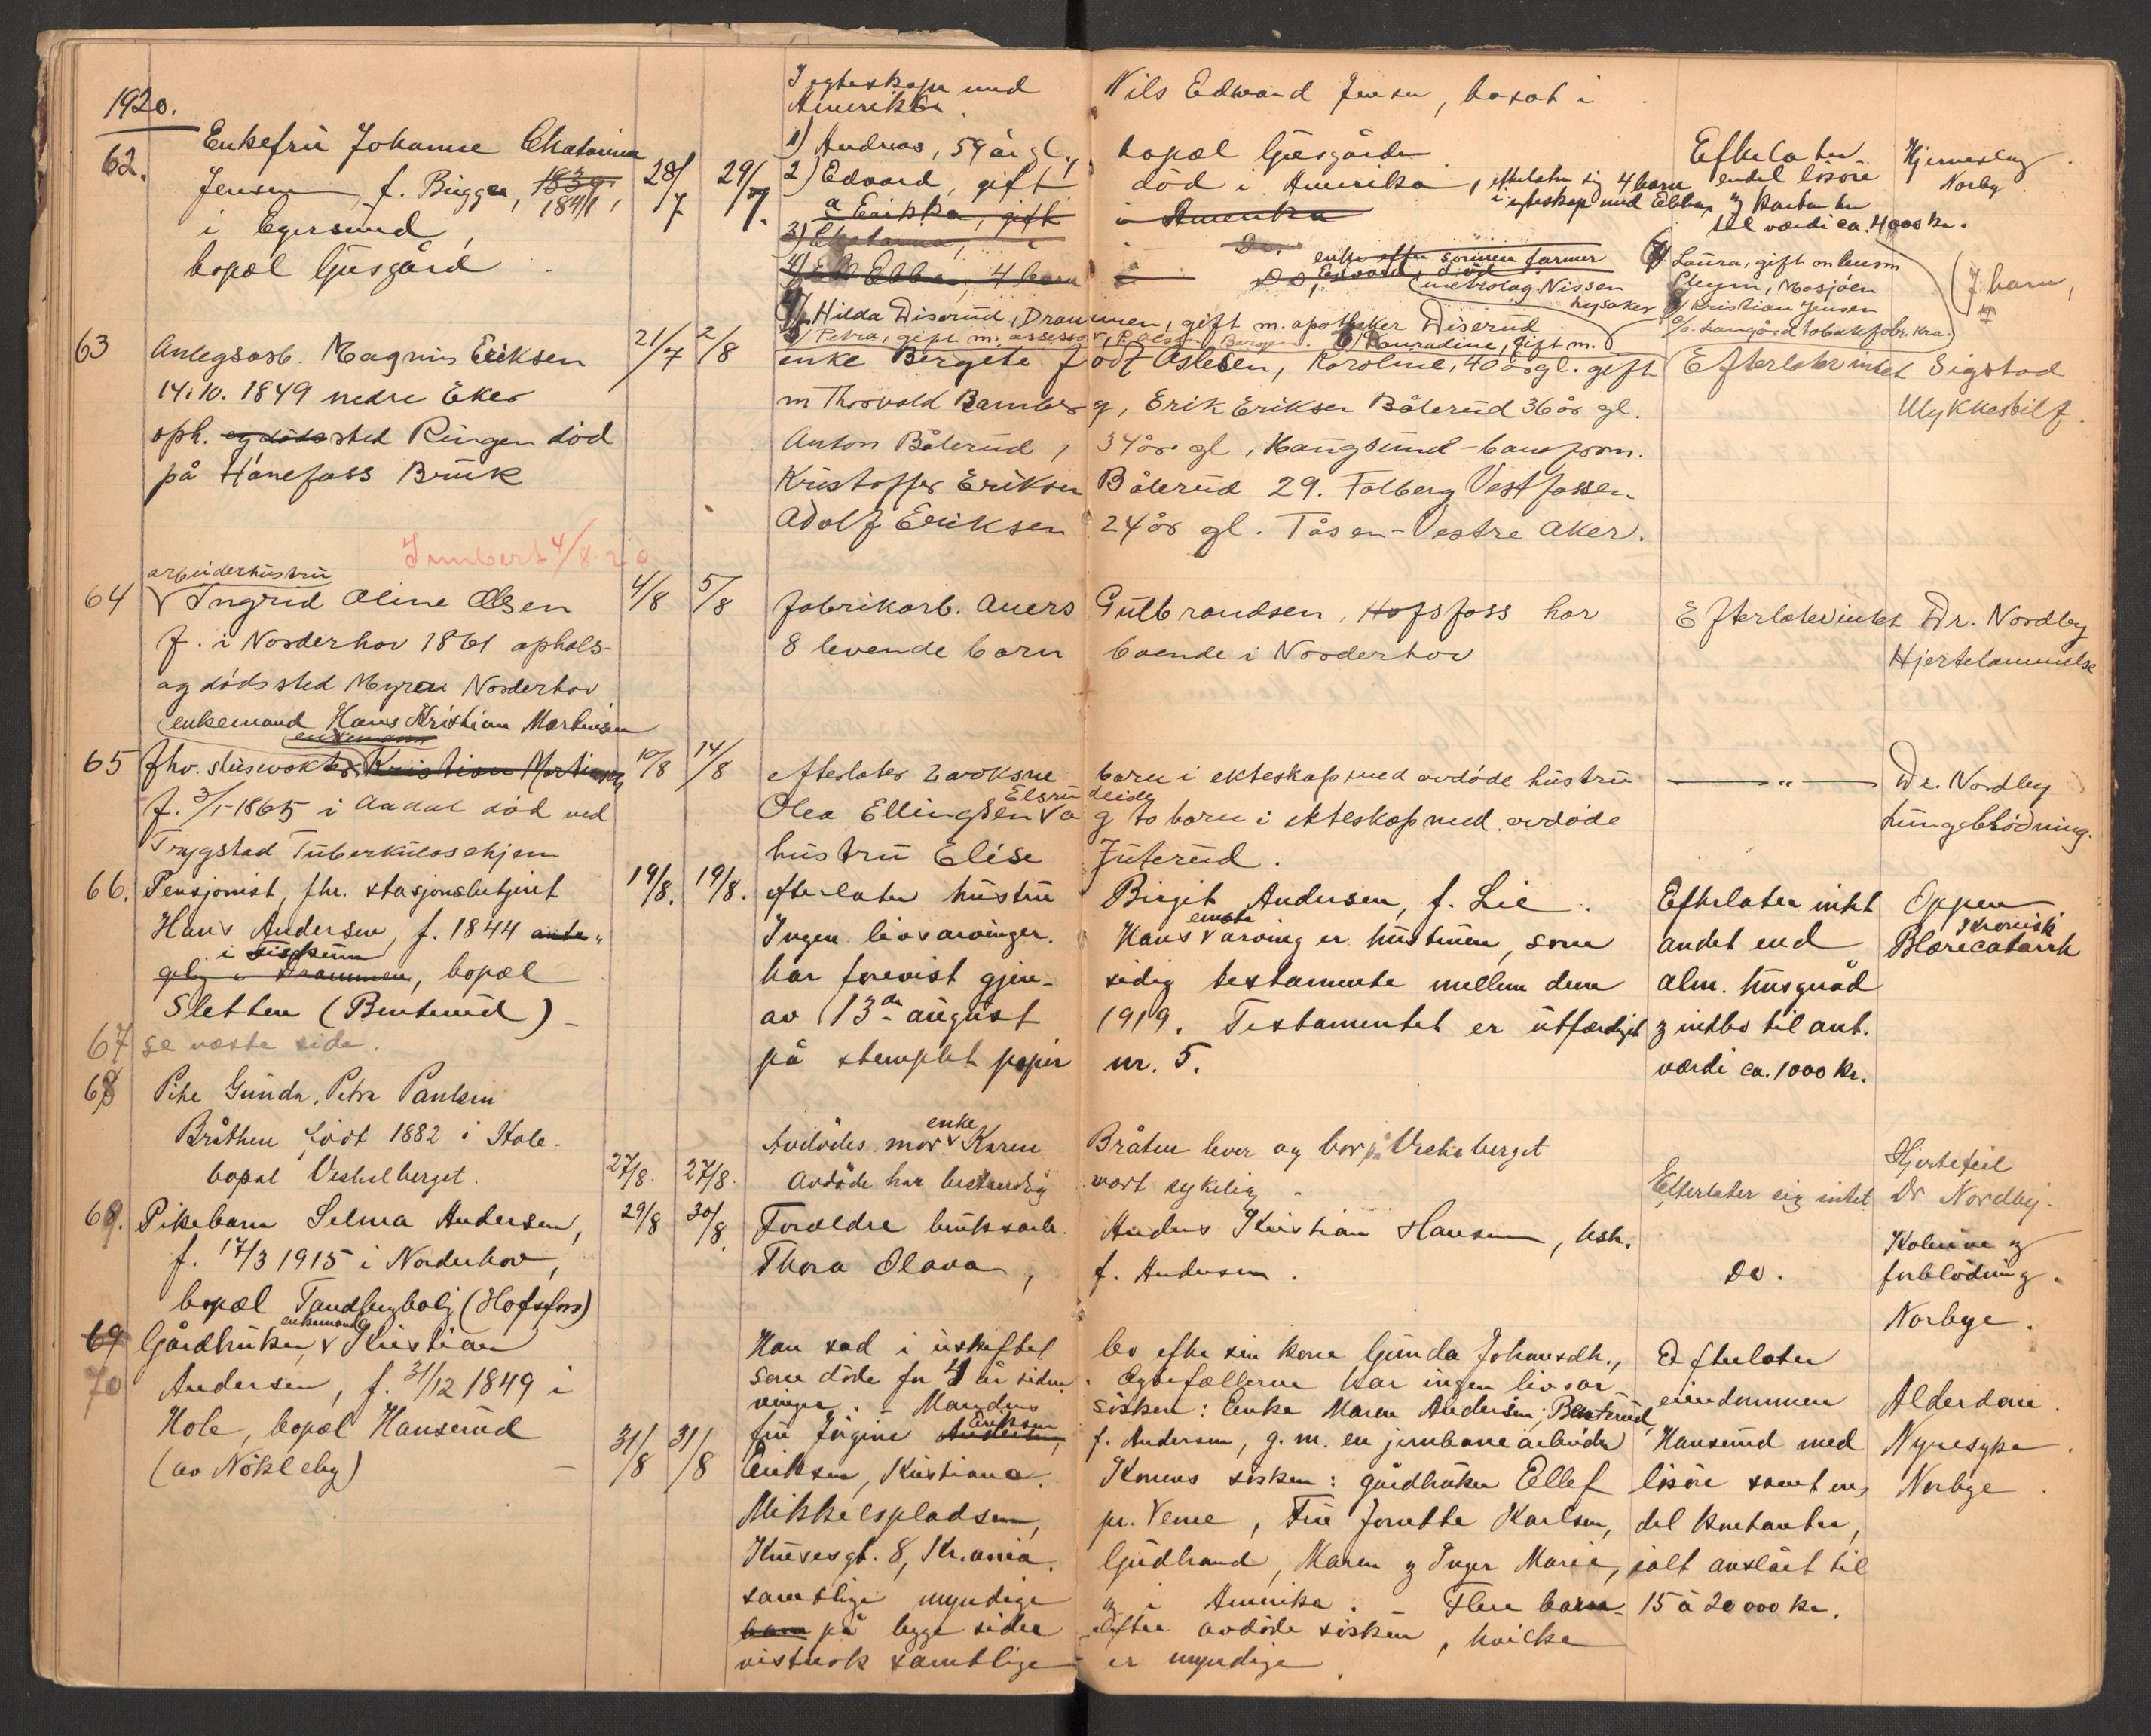 1920.
62. Enkefru Johanne Chatarina
Jensen, f. Bugge, 1839, 1841,
i Egersund,
bopæl Gusgård
28/7 29/7.
I egteskap med Nils Edward Jensen, bosat i
Amerika.
1) Andreas, 59 år gl., bopæl Gusgården
2) Edvard, gift død i Amerika, efterlater sig 4 barn
i egteskap med Ebba
a Erikka, gift i Amerika
3) Chatarina, i Do.
4) Ebba, 4 barn i Do, enke efter farmer
Edvard, død
Hilda Diserud, Drammen, gift m. apotheker Diserud
Petra, gift m. assessor, Bergen. Conradine, gift m.
metrolog Nissen
Lysaker
Efterlater
endel løsøre
og kontanter
til værdi ca. 4000 kr.
Laura, gift m
Mosjøen
Kristian Jensen
c/o. Langård tobakfabr. Kra.
(7 barn,
Hjerneslag
Norby.
63 Anlegsarb. Magnus Eriksen
14.10. 1849 nedre Eker
oph. og dødssted Ringen død
på Hånefoss Bruk
21/7 2/8
enke Bergete født Oslesen, Karoline, 40 år gl. gift
m Thorvald Bamberg, Erik Eriksen Båterud 36 år gl.
Anton Båterud, 34 år gl, Haugsund
Kristoffer Eriksen Båterud 29. Folberg Vestfossen
Adolf Eriksen 24 år gl. Tåsen - Vestre Aker.
Efterlater intet
Sigstad
Ulykkestilf.
4/8-20
64 arbeiderhustru
Ingrid Oline Olsen
f. i Norderhov 1861 ophols-
og dødssted Myra Norderhov
4/8 5/8
fabrikarb. Anders Gulbrandsen, Hofsfoss har
8 levende barn boende i Norderhov
Efterlater intet
Dr. Nordby
Hjertelammelse
enkemand Hans Kristian Martinsen
enkemann
65 fhv. slusevokter Kristian Martinsen
f. 3/1-1865 i Aadal død ved
Trygstad Tuberkulosehjem
10/8 14/8
efterlater 2 voksne barn i ekteskap med avdøde hustru
Olea Ellingsen Elsrudeidg og to barn i ekteskap med avdøde
hustru Elise Juterud.
— " —
Dr. Nordby
Lungeblødning.
66. Pensjonist, fhv. stasjonsbetjent
Hans Andersen, f. 1844 anta-
gelig i Drammen, bopæl
Sletten (Benterud)
19/8. 19/8.
efterlater hustru Birgit Andersen, f. Lie.
Ingen livsarvinger. Hans eneste arving er hustruen, som
har forevist gjen- sidig testamente mellem dem
av 13de august 1919. Testamentet er utfærdiget
på stemplet papir nr. 5.
Efterlater intet
andet end
alm. husgeråd
og indbo til ant.
værdi ca. 1000 kr.
Oppen
Kronisk
Blærecatarrh
67 se næste side.
68 Pike Gunda, Petra Paulsen
Bråthen født 1882 i Hole.
bopæl Veshelberget.
27/8. 27/8.
Avdødes mor enke Karen Bråten lever og bor på Veshelberget
Avdøde har bestandig vært sykelig.
Efterlater sig intet
Hjertefeil
Dr Nordby.
69. Pikebarn Selma Andersen,
f. 17/3 1915 i Norderhov,
bopæl Tandbergbolig (Hofsfoss)
29/8 30/8.
Forældre bruksarb. Anders Kristian Hansen, hstr.
Thora Olava, f. Andersen.
Do.
Kolerine og
forblødning.
Norbye.
69 70 Gårdbruker enkemand Kristian
Andersen, f. 31/12 1849 i
Hole, bopæl Hanserud
(av Nøkleby)
31/8 31/8
Han sad i uskiftet bo efter sin kone Gunda Johansdtr.,
som døde for 4 år siden. Egtefællerne har ingen livsar-
vinger. - Mandens søsken: Enke Maren Andersen, Benterud,
fru Jørgine Eriksen f. Andersen, g. m. en jernbanearbeider
Eriksen, Kristiania. Konens søsken: gårdbruker Ellef
Mikkelspladsen, pr. Veme, Fru Jonette Karlsen,
Krusesgt. 8, Kr.ania. Gudbrand, Maren og Inger Marie,
samtlige myndige og i Amerika. - Flere barn
barn på begge sider efter avdøde søsken, hvilke
vistnok samtlige er myndige.
Efterlater
eiendommen
Hanserud med
løsøre samt en
del kontanter,
ialt anslåt til
15 à 20000 kr.
Alderdom.
Nyresyke.
Norbye.